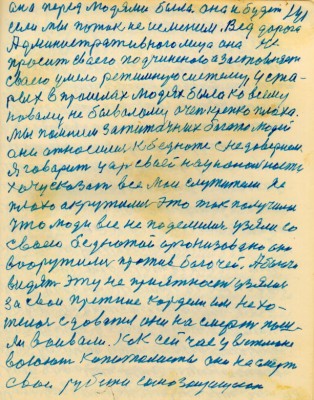 она перед людями была она и будет 141
если мы поток не изменим. Вед дорога
Административного мира она не
просит своего подчиненово а заставляет
своего умело режимную систему, у ста-
рых в прошлах людях было ко всему
новому не бывалому очен крепко плохо.
Мы помним зажиточных богато людей
они относилис к бедноте с недоверием.
Я говорит царский национальность
хочу сказать все мои служители не
плохо окружили это так получилос
что люди все не поделилис узяли со
своего беднотой организовано они
вооружилис против богачей. Абаче
видят эту не приятность узялис
за свои прежние кордены им не хо-
телос сдоватся они на смерть пош-
ли воевали. Как сейчас у вьетнаме
воюют капиталисты они насмерт
свои рубежи